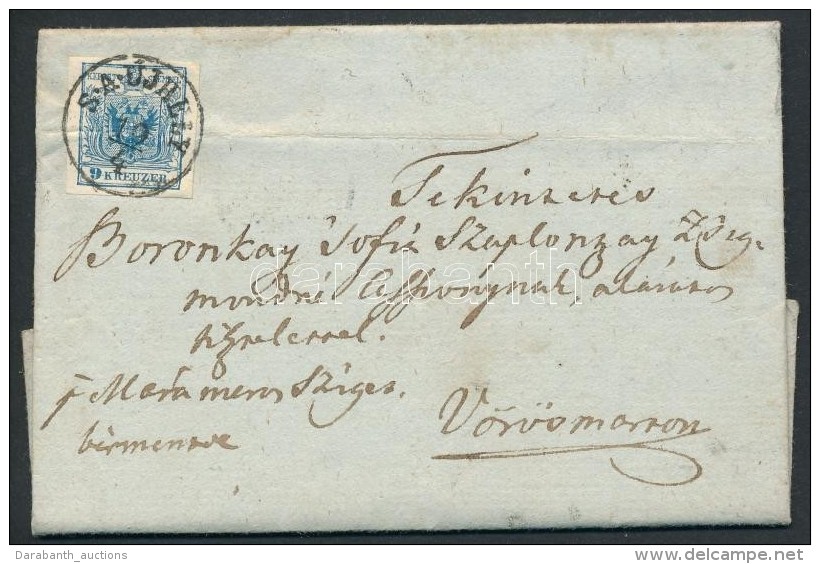 S·A·ÚJHELY
19
4
9 KREUZER
Tekintetes
Boronkay Sofia Szaplonzay Zsig-
mondné Asszonynak, alázatos
tisztelettel.
Mára maros Sziget.
bérmentve
Vörösmarton
darabanth
Darabanth_auctions
delcampe.net